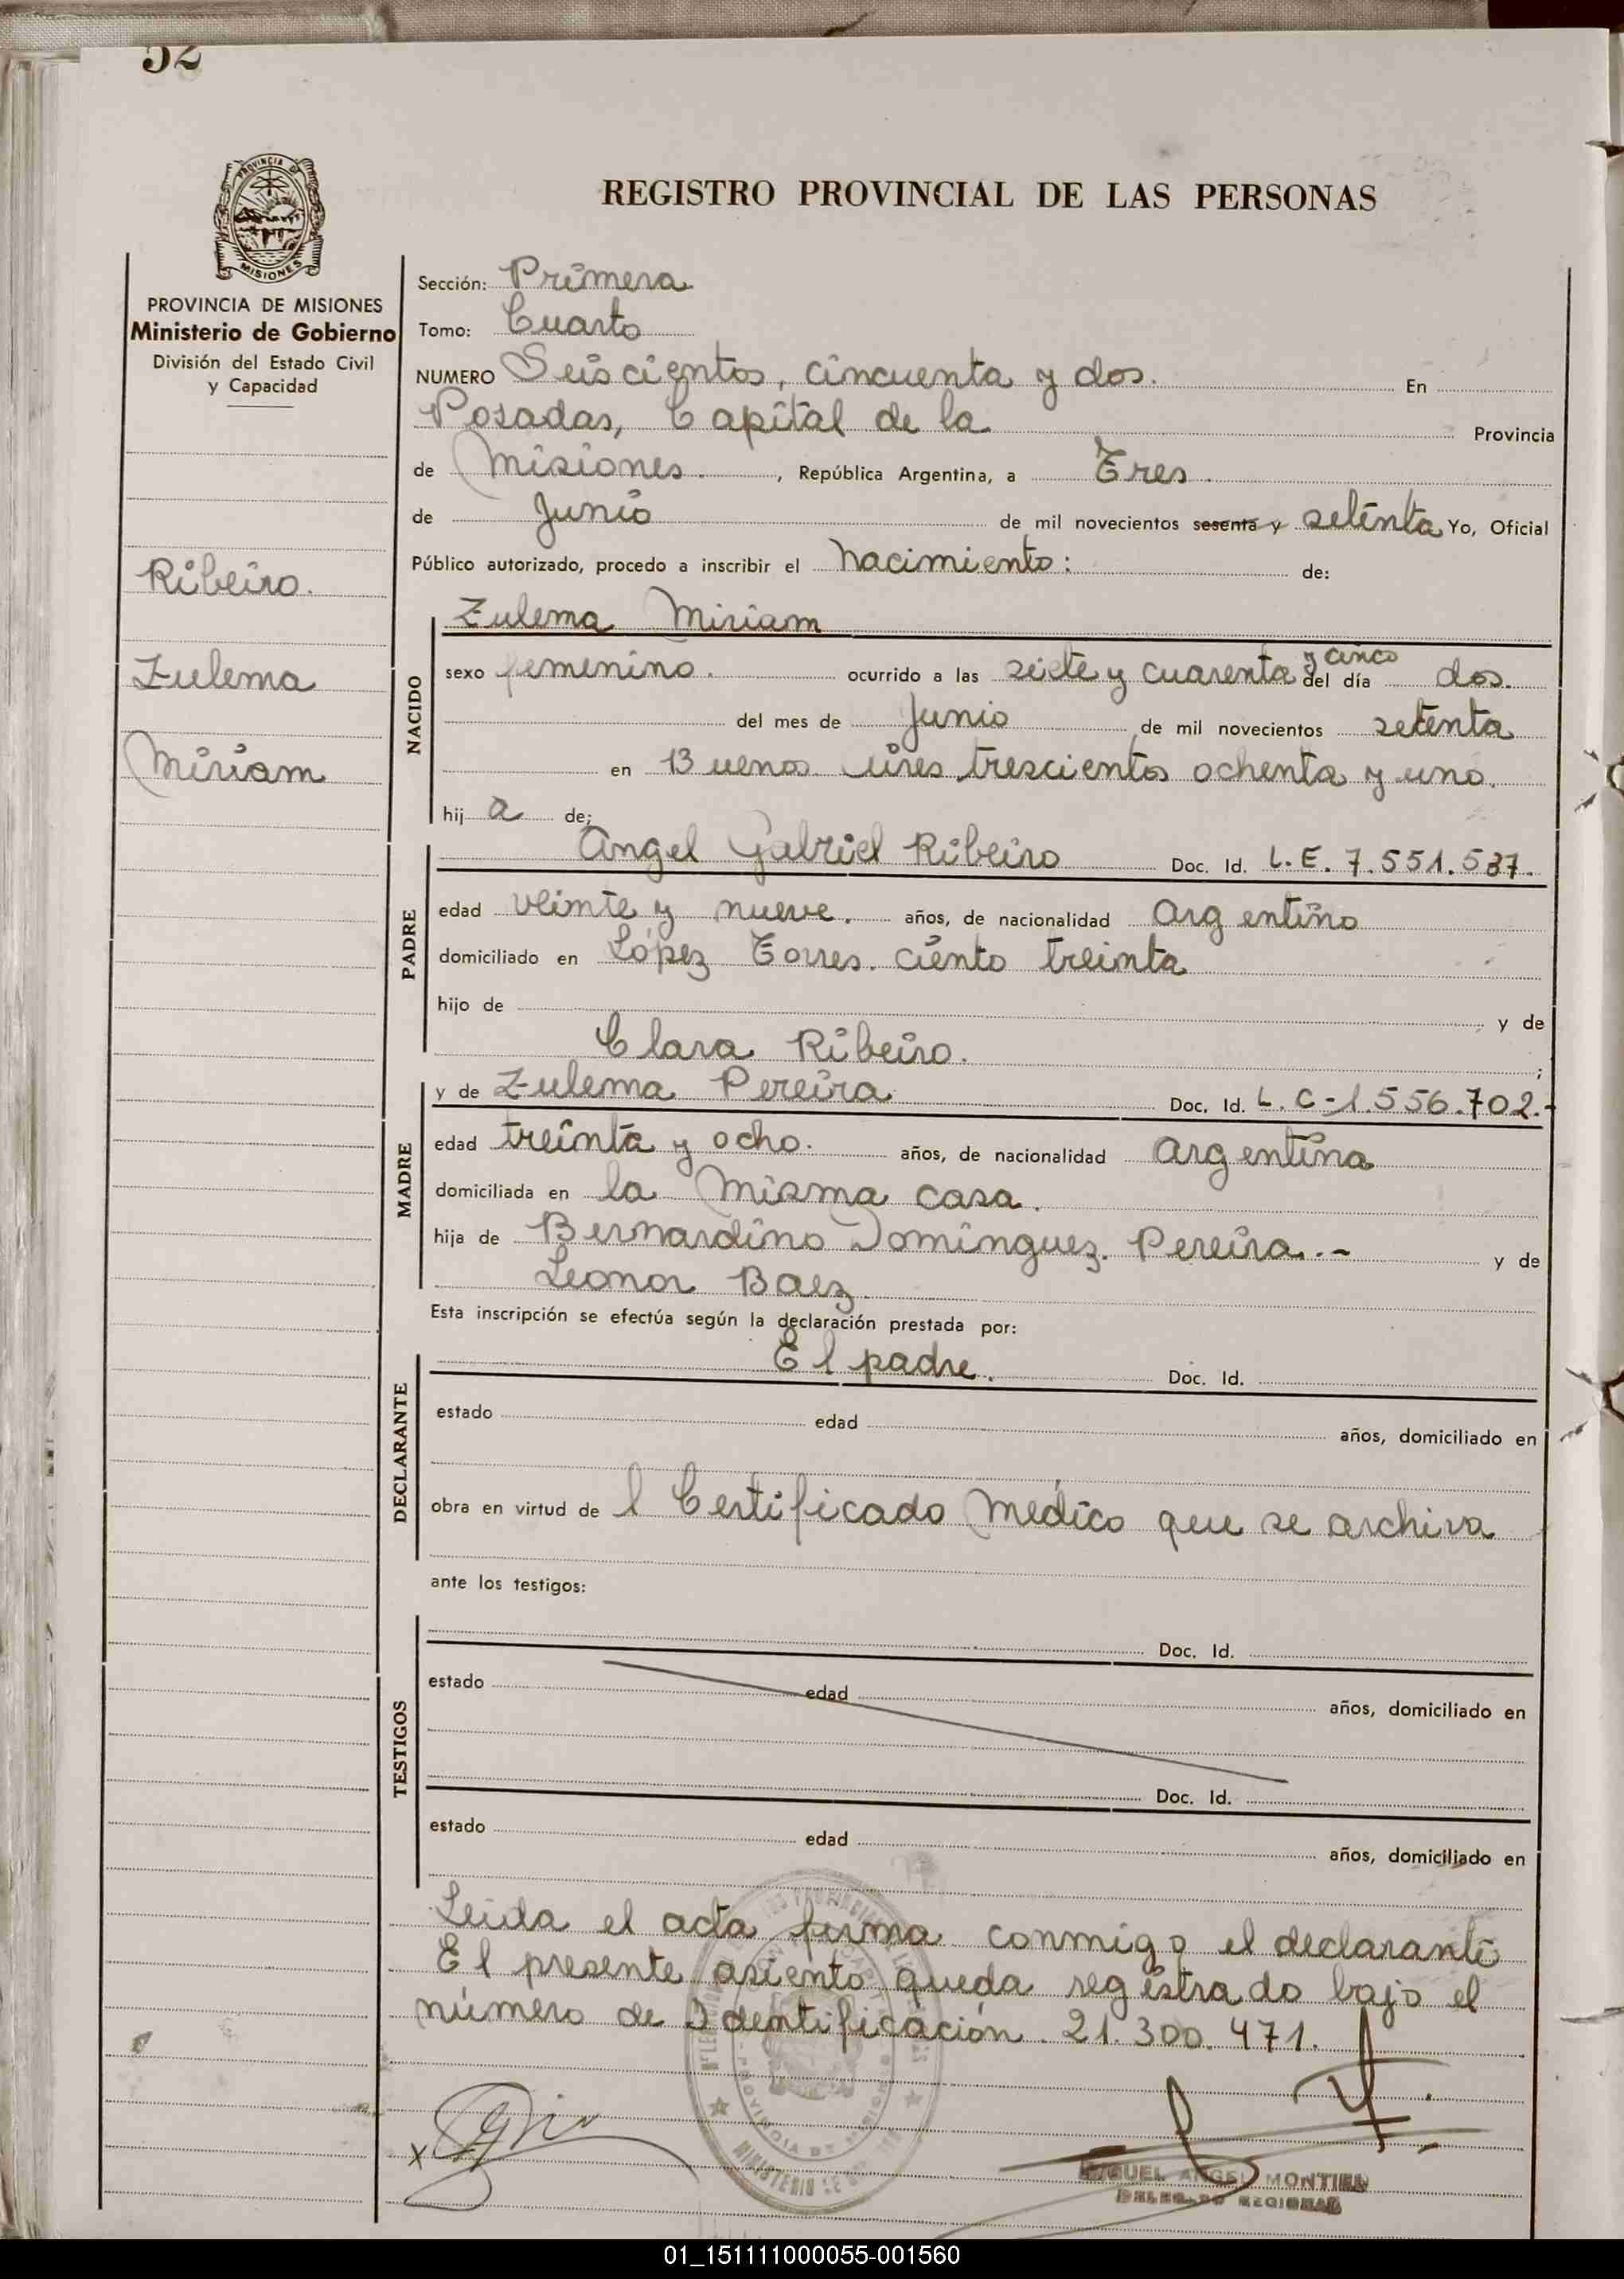 52
PROVINCIA DE
MISIONES
PROVINCIA DE MISIONES
Ministerio de Gobierno
División del Estado Civil
y Capacidad
Ribeiro.
Zulema
Miriam
REGISTRO PROVINCIAL DE LAS PERSONAS
Sección: Primera
Tomo: Cuarto
NUMERO Seiscientos, cincuenta y dos. En
Posadas, Capital de la Provincia
de Misiones. , República Argentina, a Tres.
de Junio de mil novecientos sesenta y setenta Yo, Oficial
Público autorizado, procedo a inscribir el nacimiento: de:
NACIDO
Zulema Miriam
sexo femenino. ocurrido a las seiete y cuarenta y cinco del día dos.
del mes de Junio de mil novecientos setenta
en Buenos aires trescientos ochenta y uno.
hij a de;
PADRE
Angel Gabriel Ribeiro Doc. Id. L.E. 7.551.537.
edad veinte y nueve. años, de nacionalidad argentino
domiciliado en López Torres. ciento treinta
hijo de y de
Clara Ribeiro. ;
MADRE
y de Zulema Pereira Doc. Id. L.C-1.556.702.-
edad treinta y ocho. años, de nacionalidad argentina
domiciliada en la misma casa.
hija de Bernardino Dominguez. Pereira.- y de
Leonor Baez.
Esta inscripción se efectúa según la declaración prestada por:
DECLARANTE
El padre. Doc. Id.
estado edad años, domiciliado en
obra en virtud de l Certificado Médico que se archiva
ante los testigos:
TESTIGOS
Doc. Id.
estado edad años, domiciliado en
Doc. Id.
estado edad años, domiciliado en
Leida el acta firma conmigo el declarante
El presente asiento queda registrado bajo el
número de Identificación. 21.300.471.
X
MIGUEL ANGEL MONTIEL
DELEGADO REGIONAL
01_151111000055-001560